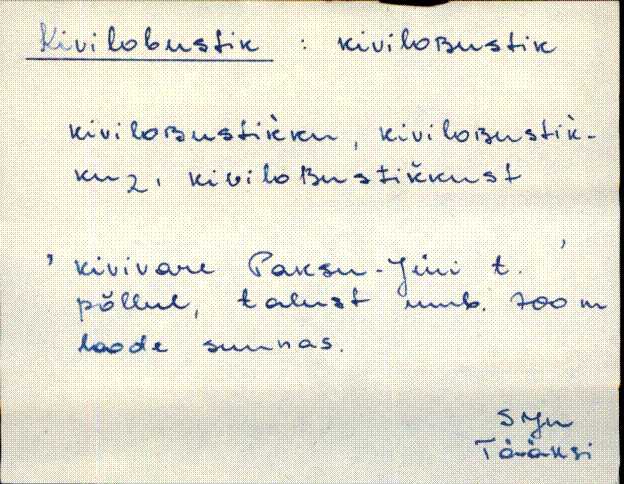 Kivilobustik : kiviloʙustik
kiviloʙustik̀ku, kiviloʙustik̀-
kuz, kiviloʙustik̀kust
' kivivare Paksu-Jüri t. '
põllul, talust umb. 700 m
loode suunas.
SJn
Tääksi